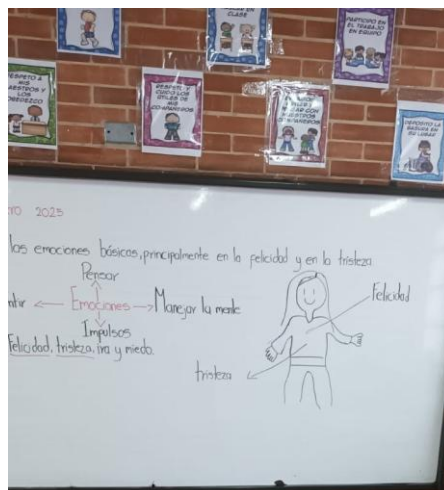 CLASE
PARTICIPO EN
EL TRABAJO
EN EQUIPO
RESPETO A
MIS
MAESTROS Y
LOS
OBEDEZCO
RESPETO Y
CUIDO LOS
ÚTILES DE
MIS
COMPAÑEROS
DEPOSITO LA
BASURA EN
SU LUGAR
2025
las emociones básicas, principalmente en la felicidad y en la tristeza.
Pensar
Emociones
Manejar la mente
Impulsos
Felicidad, tristeza, ira y miedo.
Felicidad
tristeza